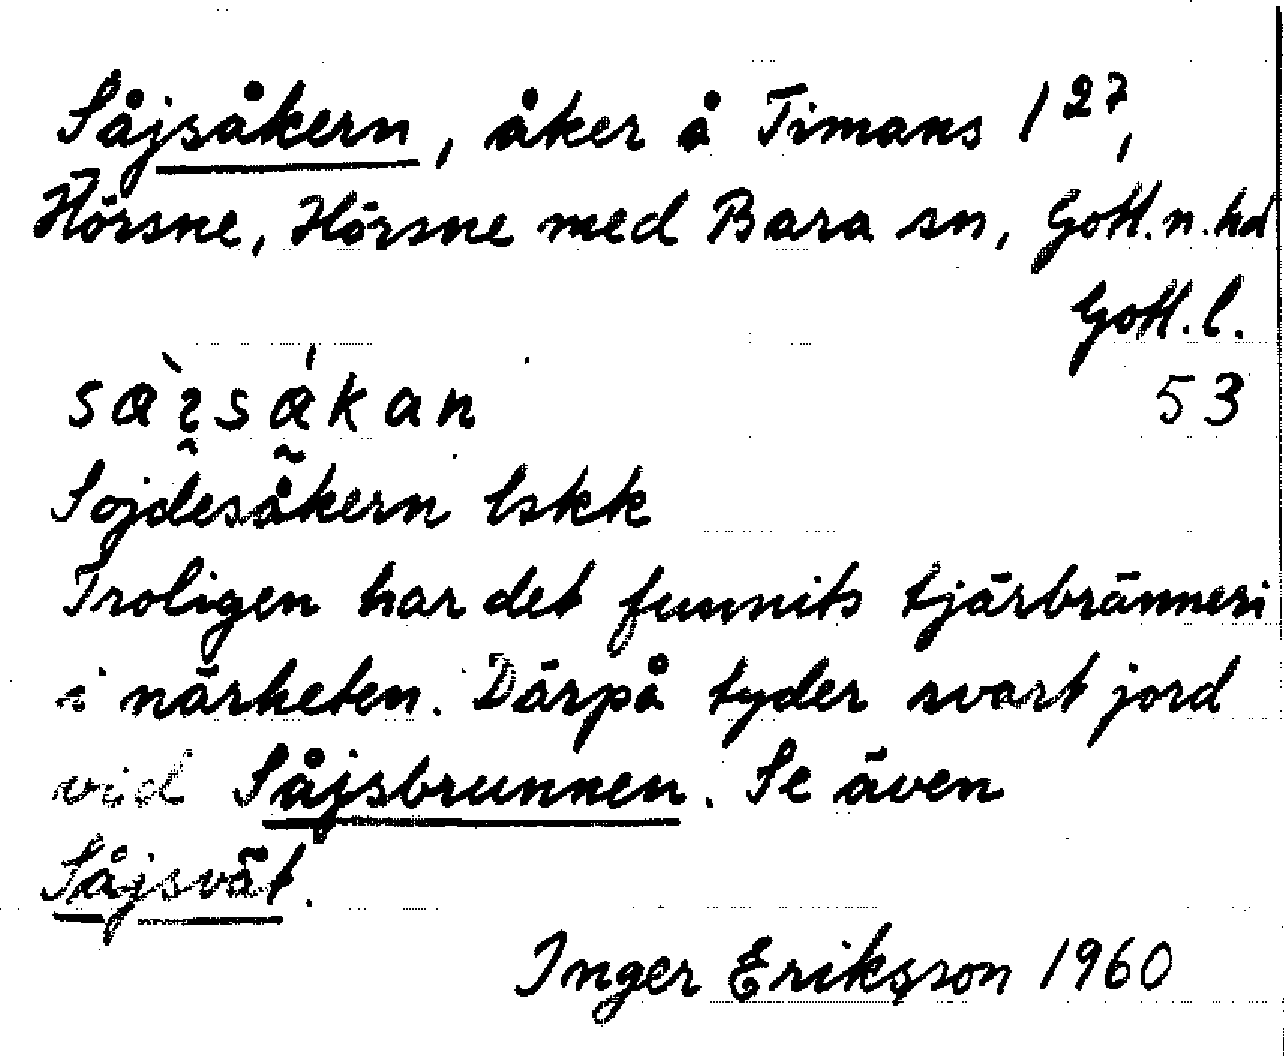 Såjsåkern, åker å Timans 1²⁷,
Hörsne, Hörsne med Bara sn, Gotl.n.hd
Gotl.l.
53
sàı̯sák̰an
Sojdesåkern lskk
Troligen har det funnits tjärbränneri
i närheten. Därpå tyder svart jord
vid Såjsbrunnen. Se även
Såjsvät.
Inger Eriksson 1960